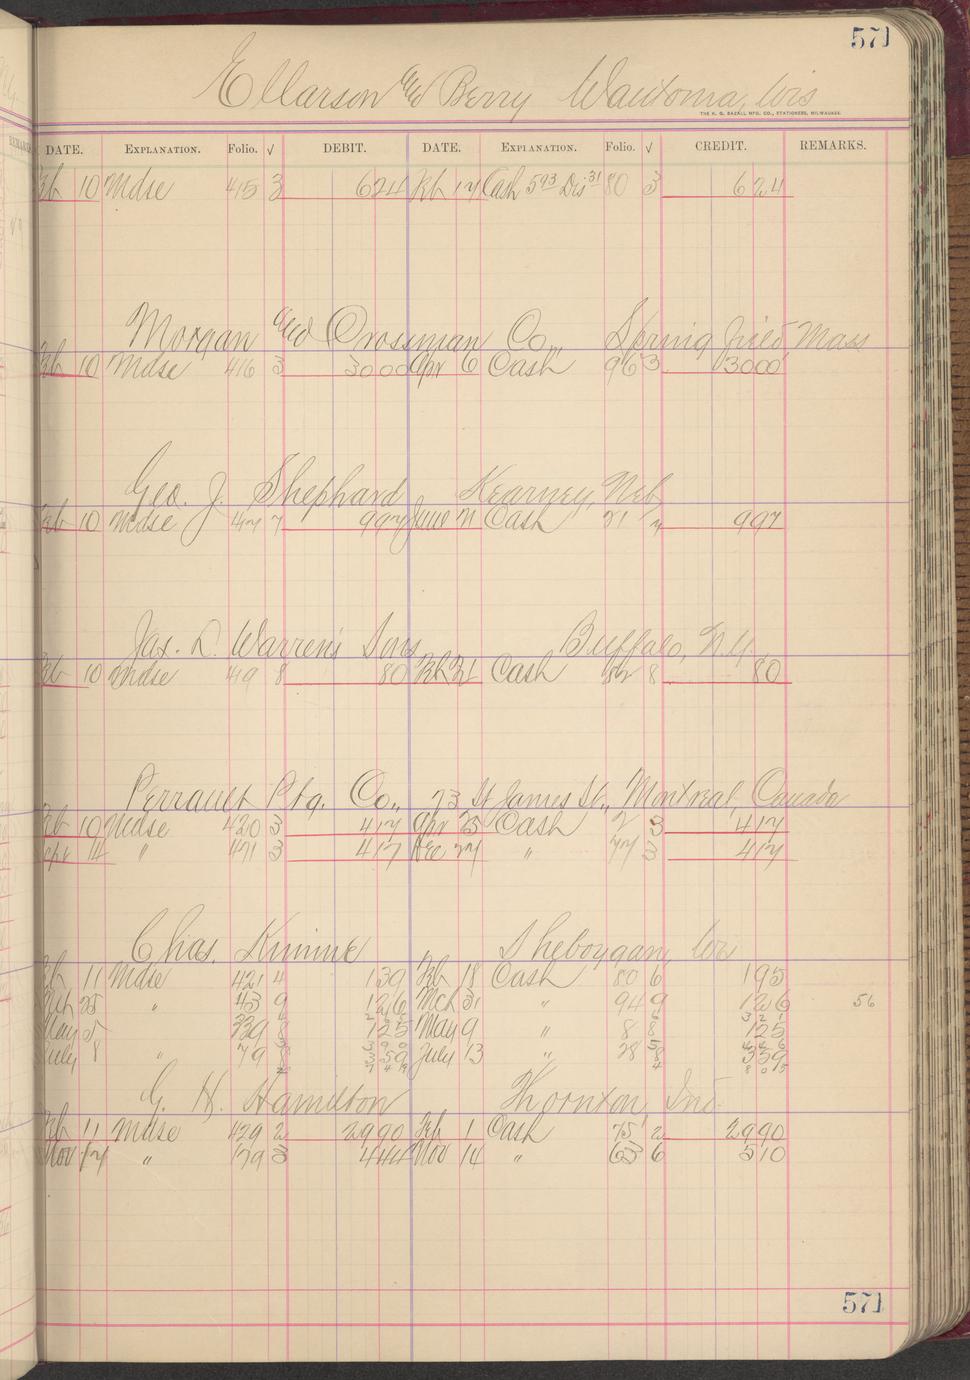 571
Ellarson and Berry Wautoma, Wis
THE H. G. RAZALL MFG. CO., STATIONERS, MILWAUKEE.
DATE. EXPLANATION. Folio. √ DEBIT. DATE. EXPLANATION. Folio. √ CREDIT. REMARKS.
Feb 10 Mdse 415 3 624 Feb 17 Cash 593 Dis 31 80 3 624
Morgan and Crossman Co., Spring field Mass
Feb 10 Mdse 416 3 3000 Apr 6 Cash 96 3 3000
Geo. J. Shephard Kearney, Neb
Feb 10 Mdse 417 7 997 June 21 Cash 21 7 997
Jas. D. Warren's Sons Buffalo, N.Y.
Feb 10 Mdse 419 8 80 Feb 21 Cash 82 8 80
Perrault Ptg. Co., 73 St James St., Montreal, Canada
Feb 10 Mdse 420 3 417 Apr 25 Cash 2 3 417
Apr 14 " 471 3 417 Dec 27 " 77 3 417
Chas. Sheboygan, Wis
Feb 11 Mdse 421 4 139 Feb 18 Cash 80 6 195
Mch 25 " 43 9 126 Mch 31 " 94 9 126 56
May 5 339 8 125 May 9 " 8 8 125
July 8 " 79 8 359 July 13 " 28 8 359
G. H. Hamilton Thornton Ind.
Feb 11 Mdse 429 2 2990 Feb 1 Cash 75 2 2990
Nov 17 " 79 3 444 Nov 14 " 63 6 510
571